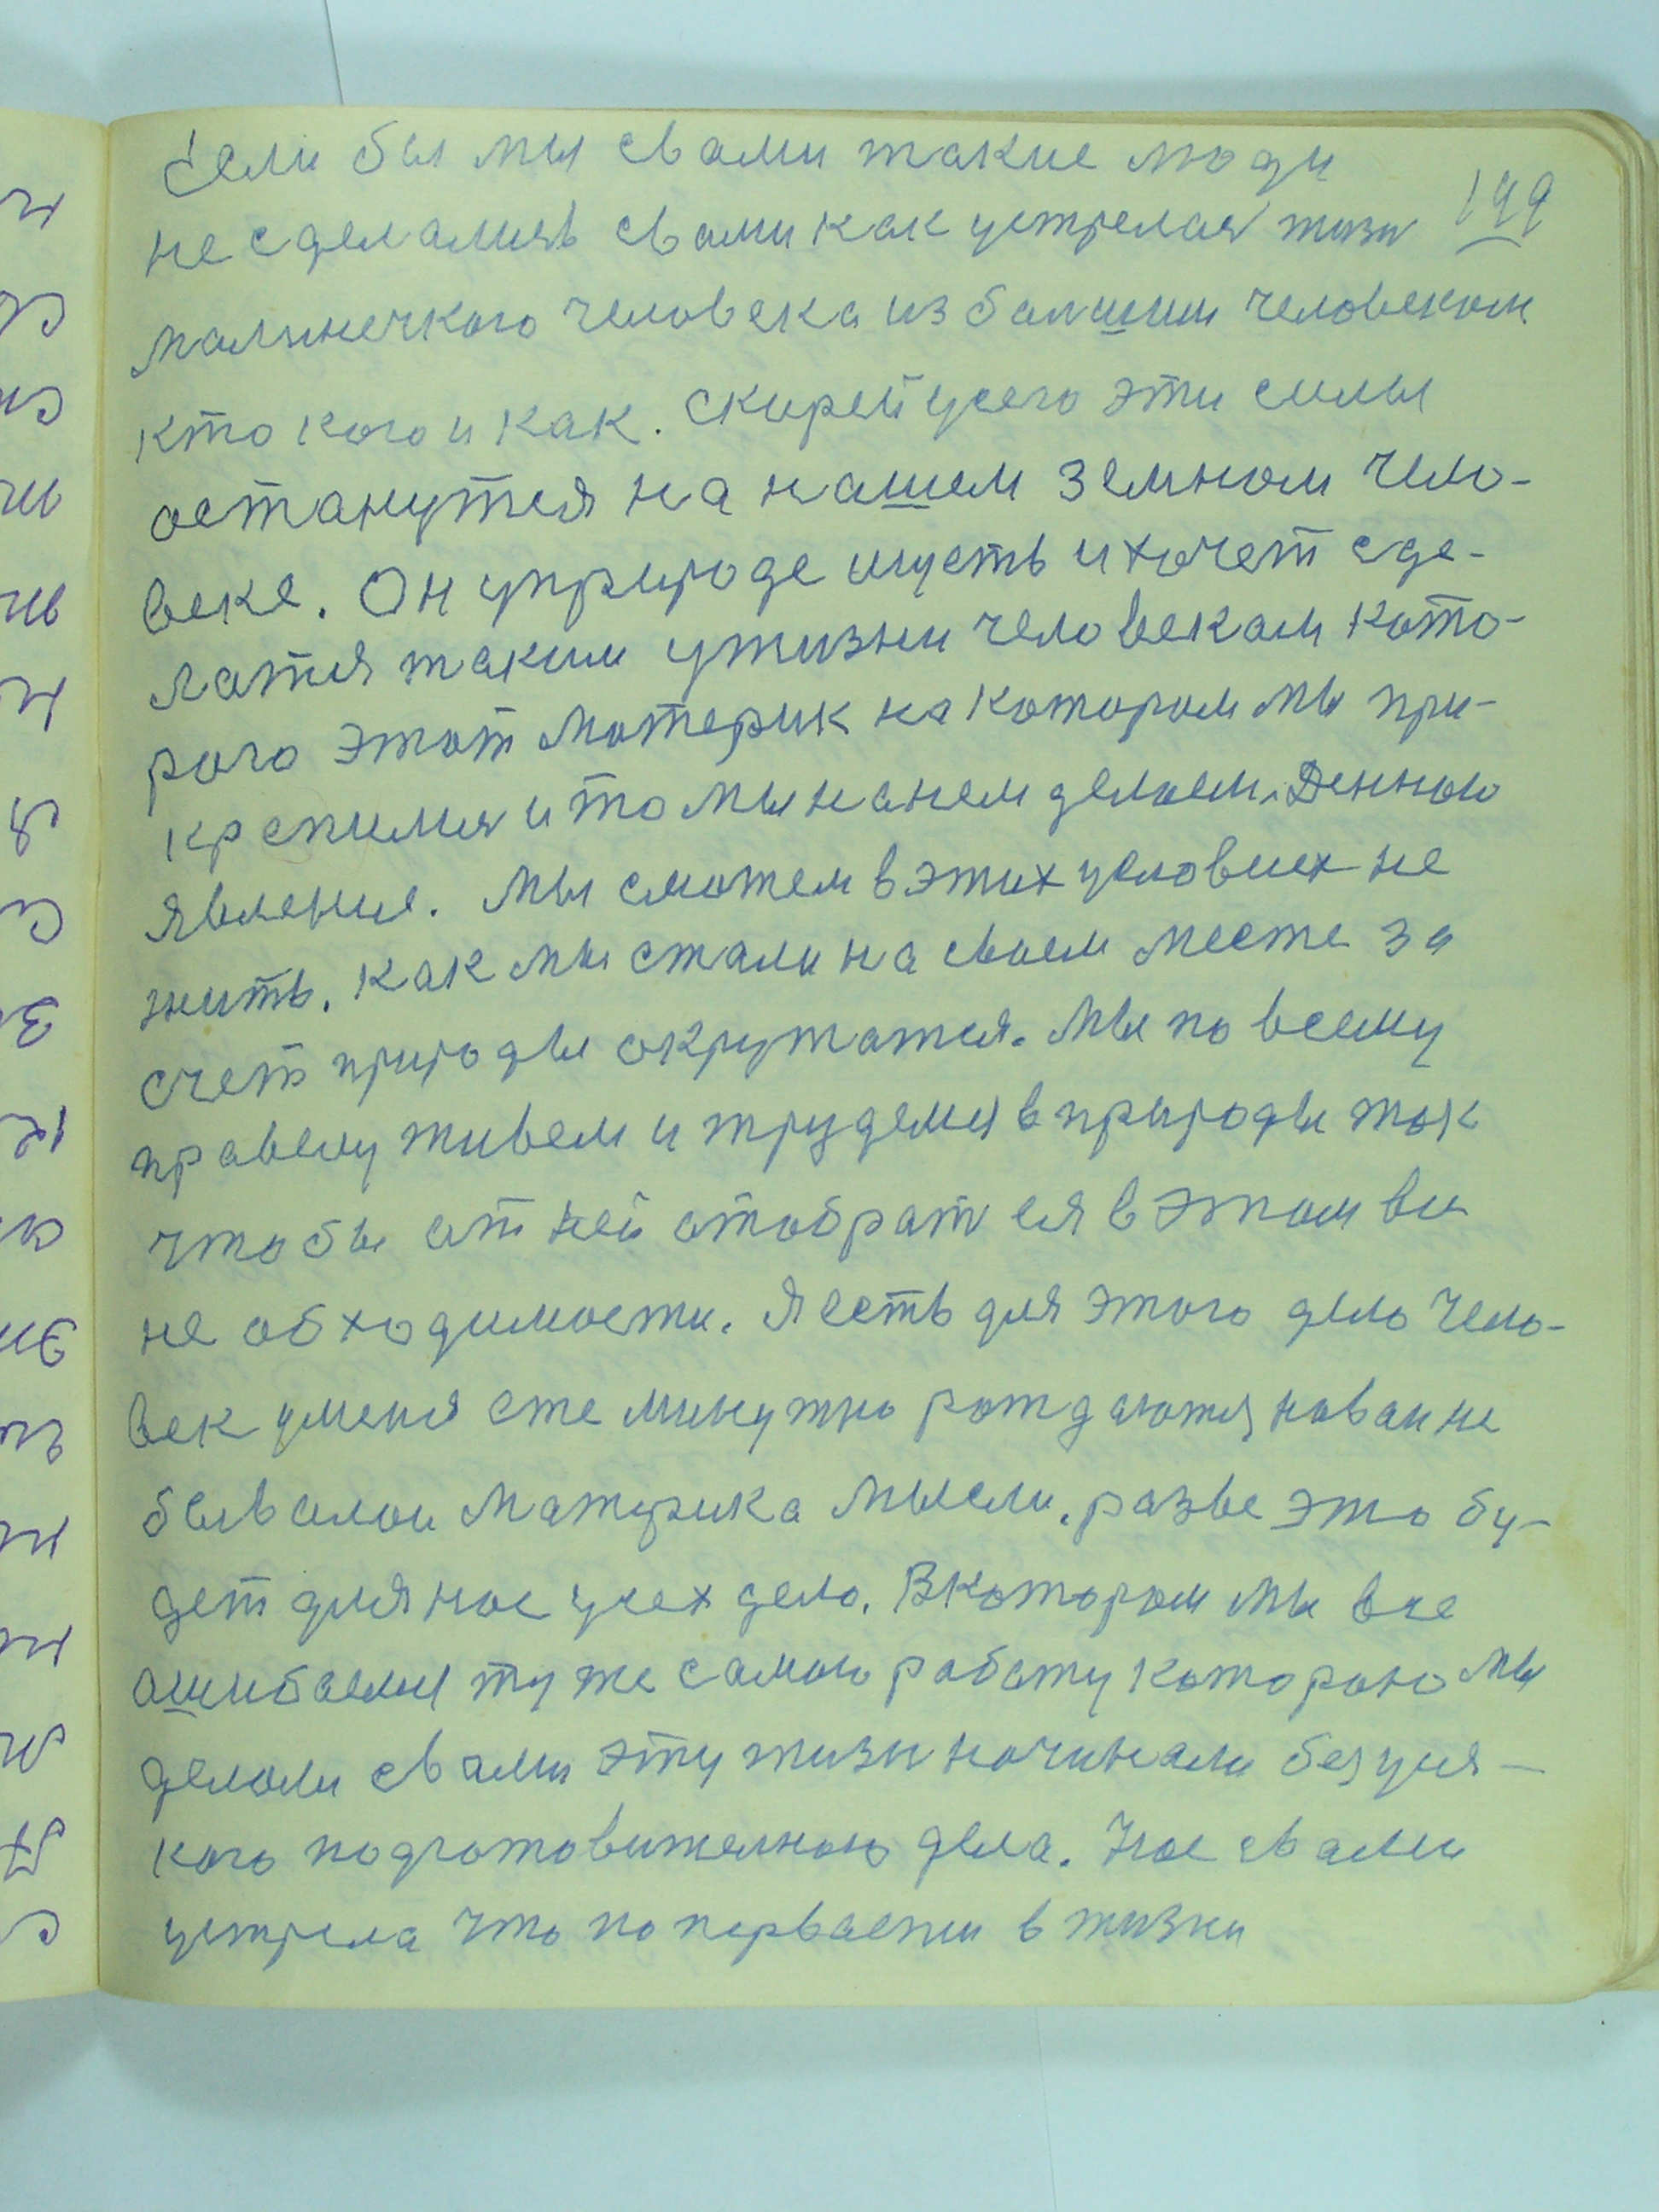 Если бы мы свами такие люди
199
не сделались свами как устрелая жизн
малинечкого человека из балшим человеком
кто кого и как. Скирей усего эти силы
останутся на нашем земном чело-
веке. Он уприроде ишусть и хочет сде-
латся таким ужизни человекам кото-
рого этот материк на котором мы при-
крепимся и то мы нанем делаем. Денною
явление. Мы сможем в этих условиех не
жить. Как мы стали на своем месте за
счет природы окружатся. Мы по всему
правему живем и трудемся в природы так
чтобы от ней отобрат ся в этом ви
не обходимости. Я есть для этого дело чело-
век уменя стеминутно рождаются новаи не
бывалои матерika мысли. разве это бу-
дет для нас усех дело. Вкотором мы все
ошибаемся туже самою работу которою мы
делали свами эту жизн начинали безуся-
кого подготовителною дела. Нас свами
устрела что по первасти в жизни